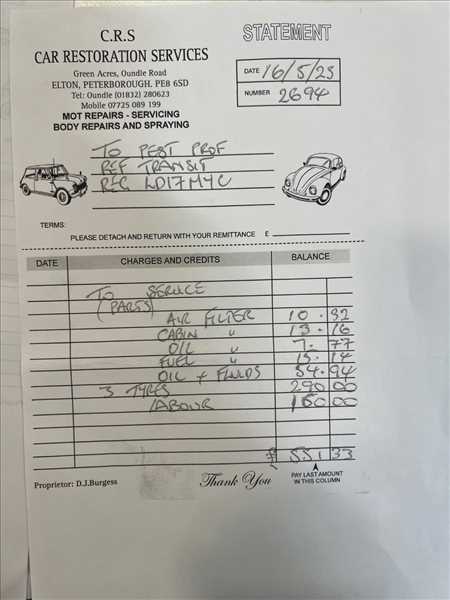 C.R.S
CAR RESTORATION SERVICES
Green Acres, Oundle Road
ELTON, PETERBOROUGH. PE8 6SD
Tel: Oundle (01832) 280623
Mobile 07725 089 199
MOT REPAIRS - SERVICING
BODY REPAIRS AND SPRAYING
STATEMENT
DATE 16/5/23
NUMBER 2694
TO PEST PROF
REF TRANSIT
REG LD17MYC
TERMS:
PLEASE DETACH AND RETURN WITH YOUR REMITTANCE £
DATE CHARGES AND CREDITS BALANCE
TO SERVICE
(PARTS)
AIR FILTER 10.32
CABIN " 13.16
OIL " 7.77
FUEL " 15.14
OIL + FLUIDS 54.94
3 TYRES 290.00
LABOUR 160.00
£ 551.33
Proprietor: D.J.Burgess
Thank You
PAY LAST AMOUNT
IN THIS COLUMN